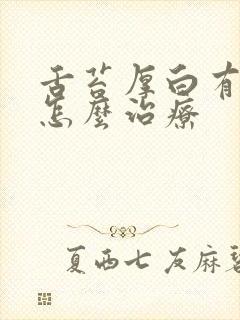 舌苔厚白有
怎麼治療
夏西七友麻碧